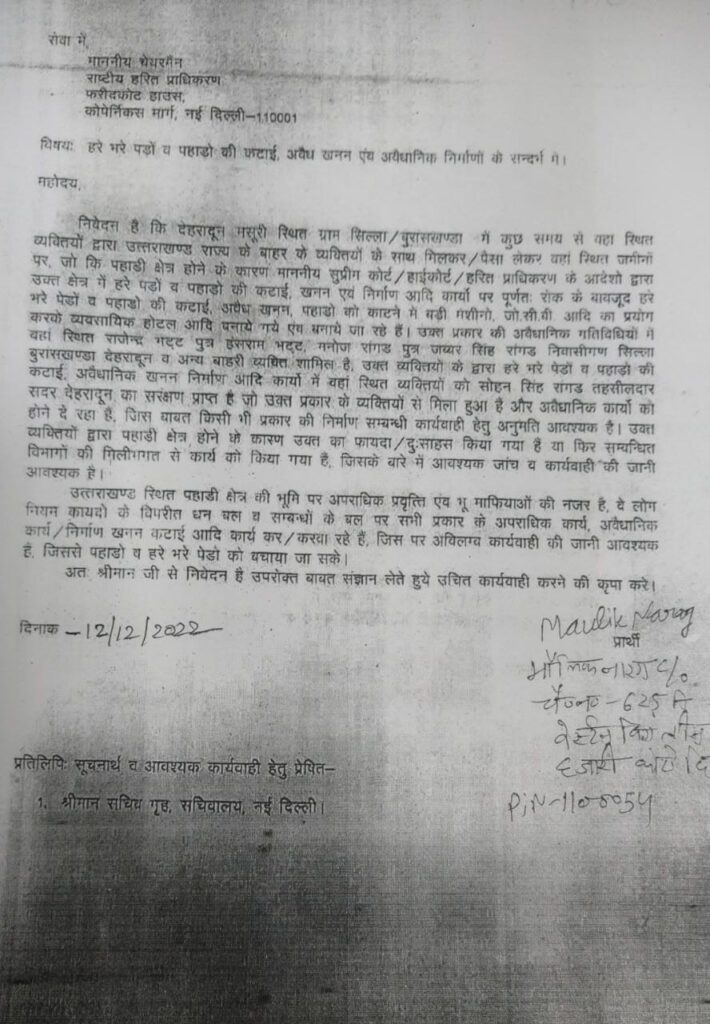 सेवा में,
माननीय चेयरमैन
राष्टीय हरित प्राधिकरण
फरीदकोट हाउस,
कोपेर्निकस मार्ग, नई दिल्ली–110001
विषयः हरे भरे पडों व पहाडो की कटाई, अवैध खनन एंव अवैधानिक निर्माणों के सन्दर्भ में।
महोदय,
निवेदन है कि देहरादून मसूरी स्थित ग्राम सिल्ला/बुरासखण्डा में कुछ समय से वहा स्थित
व्यक्तियों द्वारा उत्तराखण्ड राज्य के बाहर के व्यक्तियों के साथ मिलकर/पैसा लेकर वहां स्थित जमीनों
पर, जो कि पहाडी क्षेत्र होने के कारण माननीय सुप्रीम कोर्ट/हाईकोर्ट/हरित प्राधिकरण के आदेशो द्वारा
उक्त क्षेत्र में हरे पडों व पहाडो की कटाई, खनन एवं निर्माण आदि कार्यो पर पूर्णतः रोक के बावजूद हरे
भरे पेडों व पहाडो की कटाई, अवैध खनन, पहाडो को काटने में बडी मशीनो, जो.सी.वी. आदि का प्रयोग
करके व्यवसायिक होटल आदि बनाये गये एंव बनाये जा रहे हैं। उक्त प्रकार की अवैधानिक गतिविधियों में
वहां स्थित राजेन्द्र भट्ट पुत्र हंसराम भट्ट, मनोज रांगड पुत्र जब्बर सिंह रांगड निवासीगण सिल्ला
बुरासखण्डा देहरादून व अन्य बाहरी व्यक्ति शामिल है, उक्त व्यक्तियों के द्वारा हरे भरे पेडों व पहाडो की
कटाई, अवैधानिक खनन निर्माण आदि कार्यो में वहां स्थित व्यक्तियों को सोहन सिंह रांगड तहसीलदार
सदर देहरादून का संरक्षण प्राप्त है जो उक्त प्रकार के व्यक्तियों से मिला हुआ है और अवैधानिक कार्यो को
होने दे रहा है, जिस बाबत किसी भी प्रकार की निर्माण सम्बन्धी कार्यवाही हेतु अनुमति आवश्यक है। उक्त
व्यक्तियों द्वारा पहाडी क्षेत्र होने के कारण उक्त का फायदा/दुःसाहस किया गया है या फिर सम्बन्धित
विभागों की मिलीभगत से कार्य को किया गया है, जिसके बारे में आवश्यक जांच व कार्यवाही की जानी
आवश्यक है।
उत्तराखण्ड स्थित पहाडी क्षेत्र की भूमि पर अपराधिक प्रवृत्ति एंव भू माफियाओं की नजर है, वे लोग
नियम कायदों के विपरीत धन बल व सम्बन्धों के बल पर सभी प्रकार के अपराधिक कार्य, अवैधानिक
कार्य/निर्माण खनन कटाई आदि कार्य कर/करवा रहे हैं, जिस पर अविलम्ब कार्यवाही की जानी आवश्यक
है, जिससे पहाडो व हरे भरे पेडो को बचाया जा सके।
अतः श्रीमान जी से निवेदन है उपरोक्त बाबत संज्ञान लेते हुये उचित कार्यवाही करने की कृपा करे।
दिनाक –12/12/2022
Maulik Narag
प्रार्थी
मौलिक नारग
625
PiN-110054
प्रतिलिपिः सूचनार्थ व आवश्यक कार्यवाही हेतु प्रेषित–
1. श्रीमान सचिव गृह, सचिवालय, नई दिल्ली।